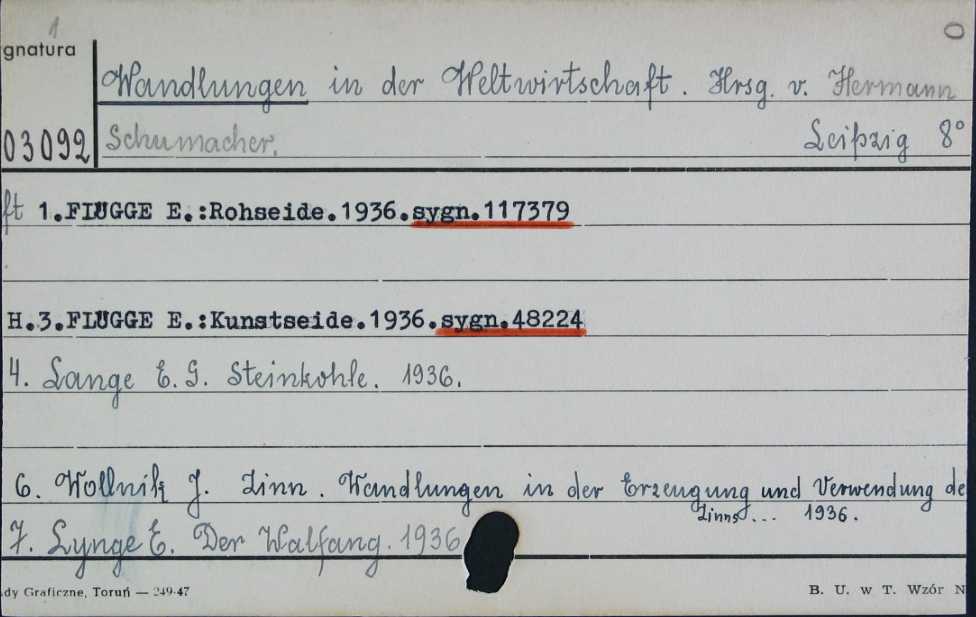 1
gnatura
Wandlungen in der Weltwirtschaft. Hrsg. v. Hermann
03092 Schumacher. Leipzig 8°
ft 1.FLÜGGE E.:Rohseide.1936.sygn.117379
H.3.FLÜGGE E.:Kunstseide.1936.sygn.48224
4. Lange E. G. Steinkohle. 1936.
6. Wollnik J. Zinn. Wandlungen in der Erzeugung und Verwendung de
Zinns... 1936.
7. Lynge E. Der Walfang. 1936
dy Graficzne, Toruń — 249-47 B. U. w T. Wzór N